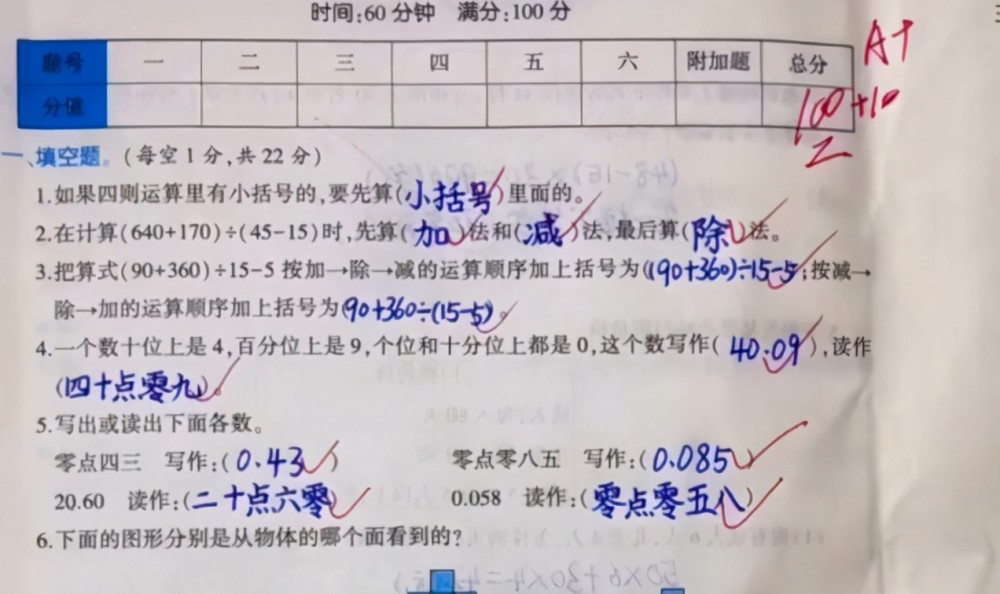 时间:60分钟 满分:100分
题号 一 二 三 四 五 六 附加题 总分
A+
分值 100+10
一、填空题。(每空1分,共22分)
1.如果四则运算里有小括号的,要先算(小括号)里面的。
2.在计算(640+170)÷(45-15)时,先算(加)法和(减)法,最后算(除)法。
3.把算式(90+360)÷15-5按加→除→减的运算顺序加上括号为((90+360)÷15-5;按减→
除→加的运算顺序加上括号为(90+360÷(15-5))。
4.一个数十位上是4,百分位上是9,个位和十分位上都是0,这个数写作(40.09),读作
(四十点零九)。
5.写出或读出下面各数。
零点四三 写作:(0.43) 零点零八五 写作:(0.085)
20.60 读作:(二十点六零) 0.058 读作:(零点零五八)
6.下面的图形分别是从物体的哪个面看到的?